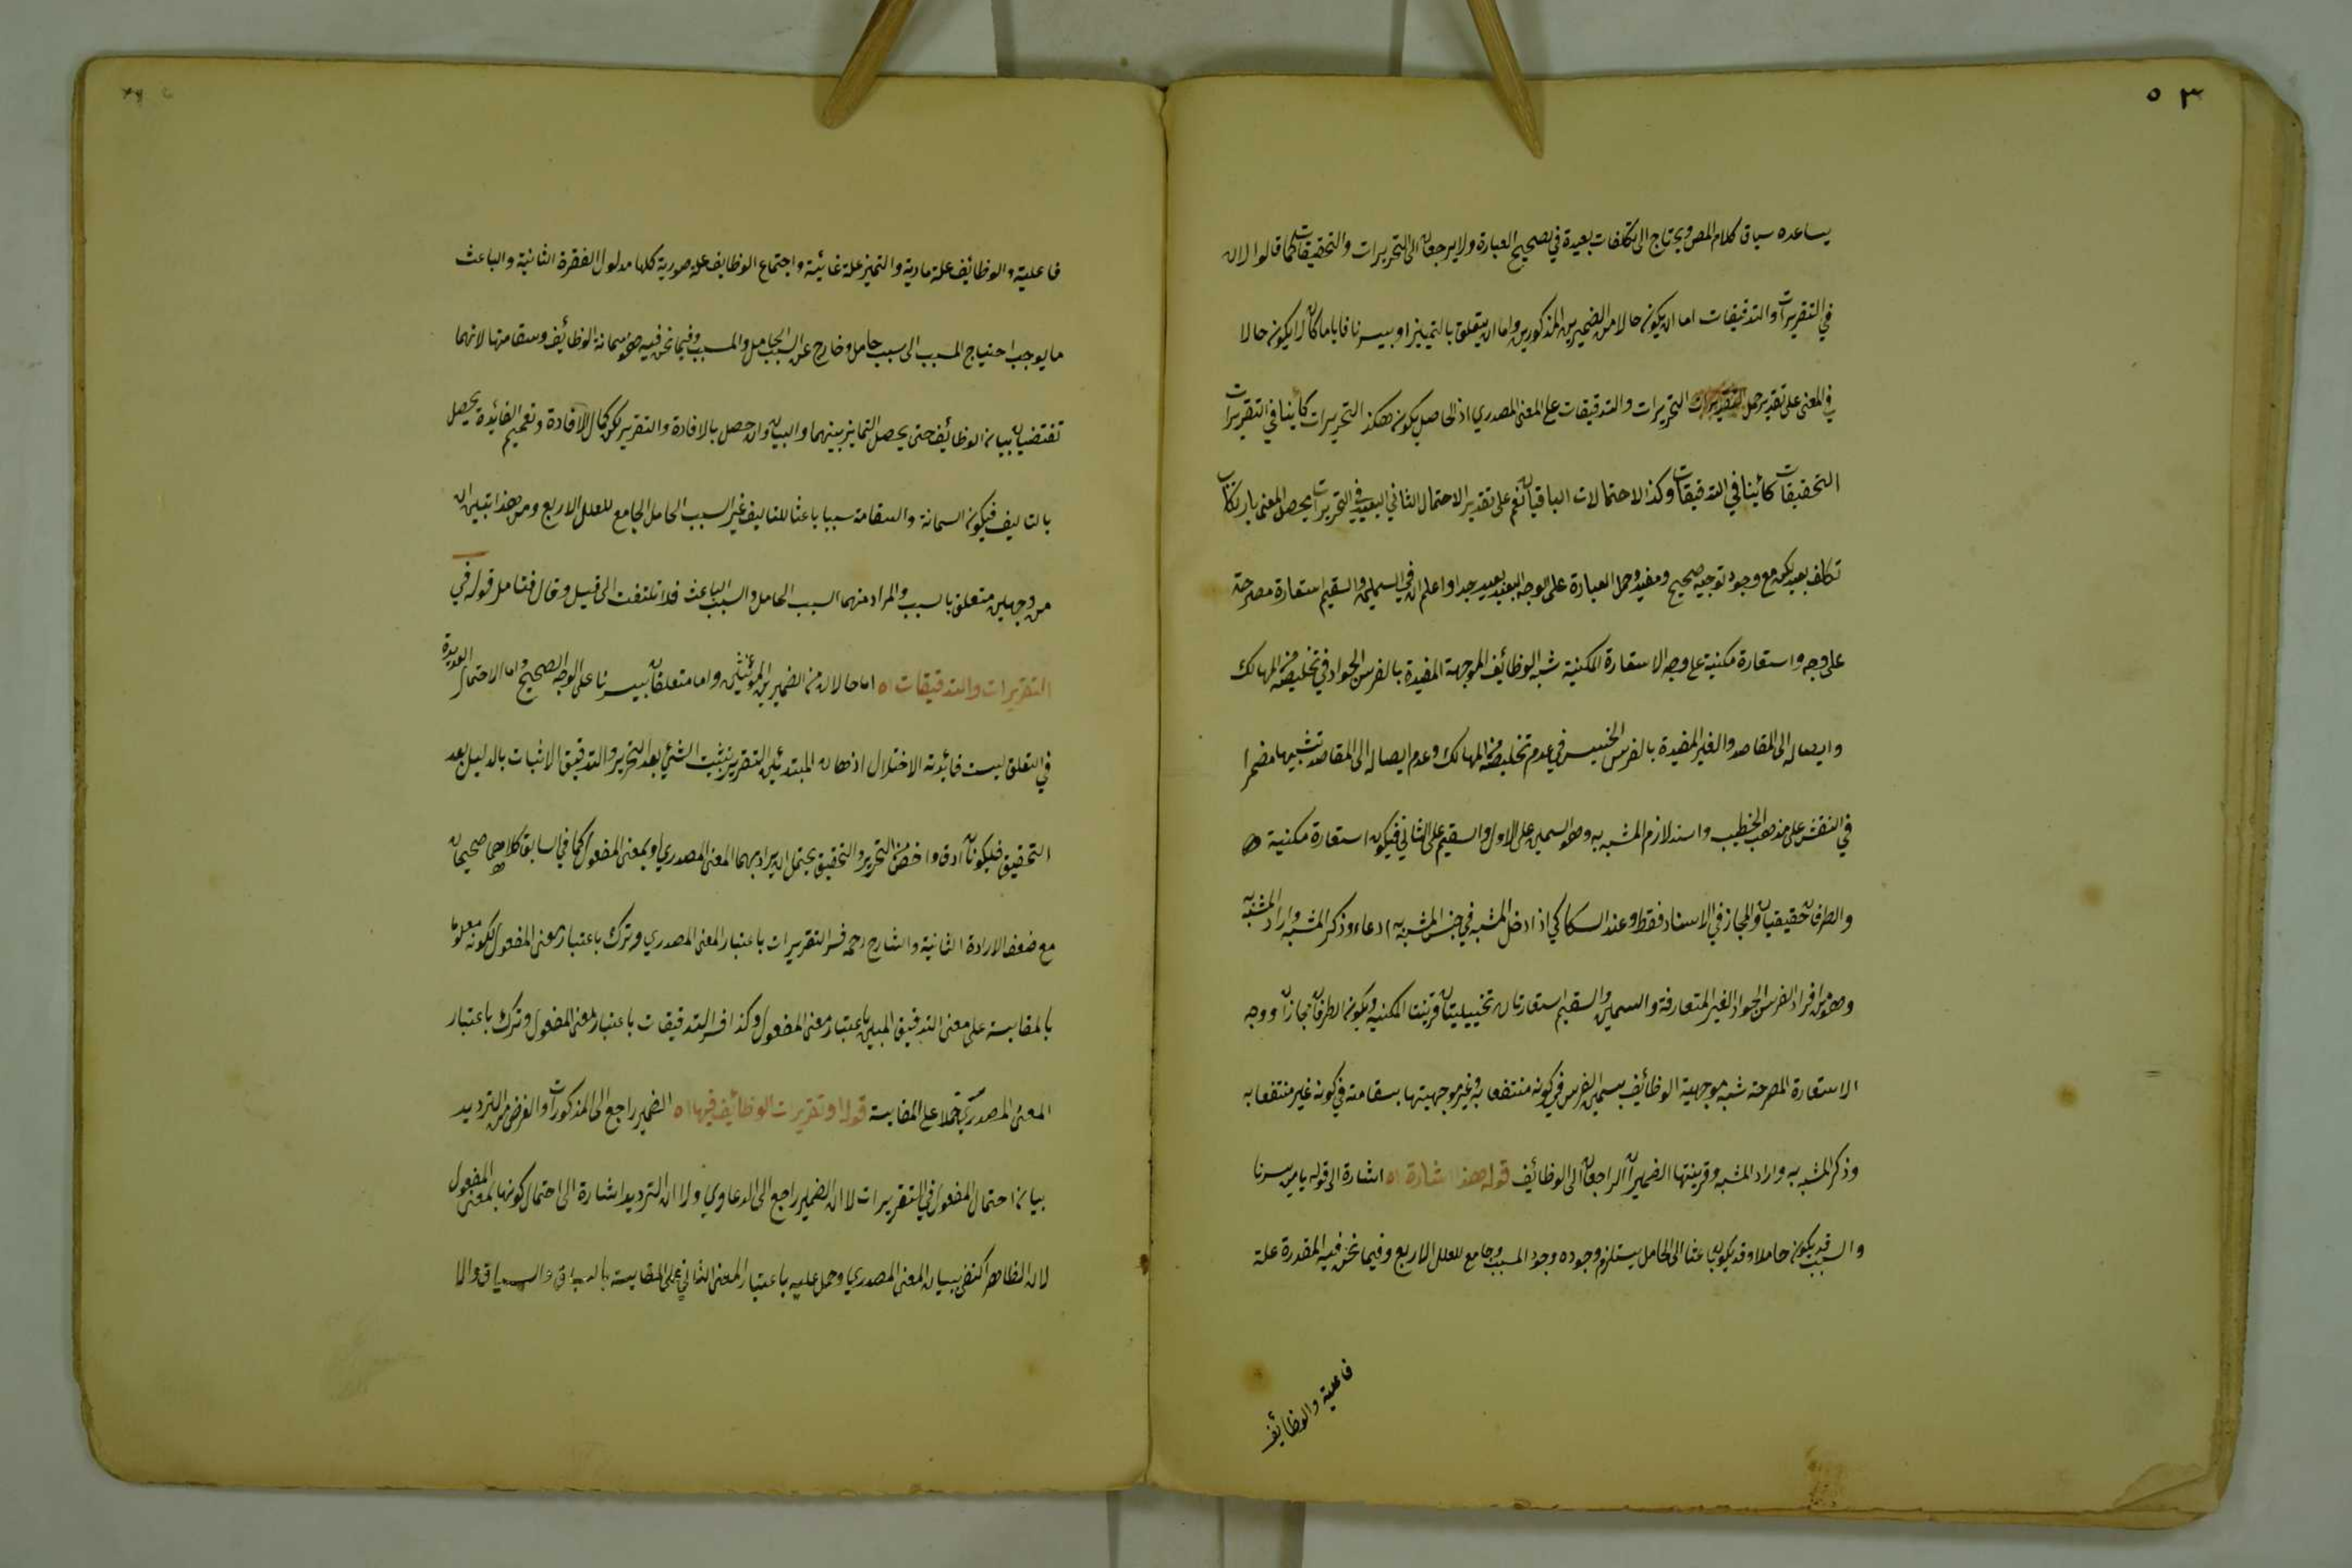 ٥٣
يساعده سياق كلام المص ويحتاج الى تكلفات بعيدة في تصحيح العبارة ولا يرجعان الى التحريرات والتحقيقات كما قالوا لان
في التقريرات والتدقيقات اما ان يكون حالا من الضميرين المذكورين واما ان يتعلق بالتمييز او بيسرنا فاياما كان لا يكون حالا
في المعنى على تقدير حمل التحريرات والتدقيقات على المعنى المصدري اذ الحاصل يكون هكذا التحريرات كائنا في التقريرات
التحقيقات كائنا في التدقيقات وكذا الاحتمالات الباقيان نعم على تقدير الاحتمال الثاني البعيد في التحريرات يحصل المعنى بارتكاب
تكلف بعيد لكن مع وجود توجيه صحيح ومفيد وحمل العبارة على الوجه البعيد بعيد جدا واعلم ان في السمين والسقيم استعارة مصرحة
على وجه واستعارة مكنية على وجه الاستعارة المكنية شبه الوظائف الموجهة المفيدة بالفرس الجواد في تخليصه من المهالك
وايصاله الى المقاصد والغير المفيدة بالفرس الخسيس في عدم تخليصه من المهالك وعدم ايصاله الى المقاصد تشبيها مضمرا
في النفس على مذهب الخطيب واسند لازم المشبه به وهو السمين على الاول والسقيم على الثاني فيكون استعارة مكنية
والطرفان حقيقيان والمجاز في الاسناد فقط وعند السكاكي اذ ادخل المشبه في جنس المشبه به ادعاء وذكر المشبه واراد المشبه به
وهو من افراد الفرس الجواد الغير المتعارفة والسمين والسقيم استعارتان تخييليتان قرينتا المكنية ويكون الطرفان مجازا ووجه
الاستعارة المصرحة شبه موجهية الوظائف بسمين الفرس في كونه منتفعا به وغير موجهيتها بسقامته في كونه غير منتفعا به
وذكر المشبه به واراد المشبه وقرينتها الضميران الراجعان الى الوظائف قوله هذا اشارة اه اشارة الى قوله يا من يسرنا
والسبب قد يكون حاملا وقد يكون باعثا الى الحامل يستلزم وجوده وجود المسبب وجامع للعلل الاربع وفيما نحن فيه المقدرة علة
فاعلية والوظائف
فاعلية والوظائف علة مادية والتميز علة غائية واجتماع الوظايف علة صورية كلها مدلول الفقرة الثانية والباعث
ما يوجب احتياج المسبب الى سبب حامل وخارج عن السبب الحامل والمسبب وفيما نحن فيه هو سمانة الوظائف وسقامتها لانهما
تقتضيان بيان الوظائف حتى يحصل التمايز بينهما والبيان وان حصل بالافادة والتقرير لكن كمال الافادة وتعميم الفائدة يحصل
بالتاليف فيكون السمانة والسقامة سببا باعثا للتاليف غير السبب الحامل الجامع للعلل الاربع ومن هذا تبين ان
من وجهين متعلق بالسبب والمراد منهما السبب الحامل والسبب الباعث فلا تلتفت الى قيل وقال فتامل قوله في
التقريرات والتدقيقات اه اما حالان من الضميرين المؤنثين واما متعلقان بيسرنا على الوجه الصحيح واما الاحتمال العديدة
في التعلق ليست فائدته الاختلال اذهان المبتدئين التقرير تثبيت الشئ بعد التحرير والتدقيق الاثبات بالدليل بعد
التحقيق فيكونان ادق واخص من التحرير والتحقيق يحتمل ان يراد بهما المعنى المصدري او بمعنى المفعول كما في السابق كلاهما صحيحان
مع ضعف الارادة الثانية والشارح رحمه فسر التقريرات باعتبار المعنى المصدري وترك باعتبار معنى المفعول لكونه معلوما
بالمقايسة على معنى التدقيق المبين باعتبار معنى المفعول وكذا فسر التدقيقات باعتبار المعنى المفعول وترك باعتبار
المعنى المصدري حملا على المقايسة قوله او تقريرات الوظائف فيها اه الضمير راجع الى المذكورات والغرض من الترديد
بيان احتمال المفعول في التقريرات لا ان الضمير راجع الى الدعاوي ولا ان الترديد اشارة الى احتمال كونها بمعنى المفعول
لان الظاهر اكتفى ببيان المعنى المصدري وحمل عليه باعتبار المعنى الثاني على المقايسة بالسباق والسياق والا